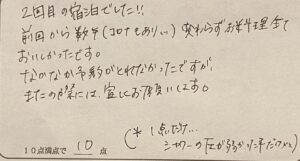 2回目の宿泊でした!!
前回から数年(コロナもあり…)変わらずお料理全て
おいしかったです。
なかなか予約がとれなかったですが、
またの際には、宜しくお願いします。
10点満点で 10 点
(* 1点だけ…
シャワーの圧が弱かった事だけ